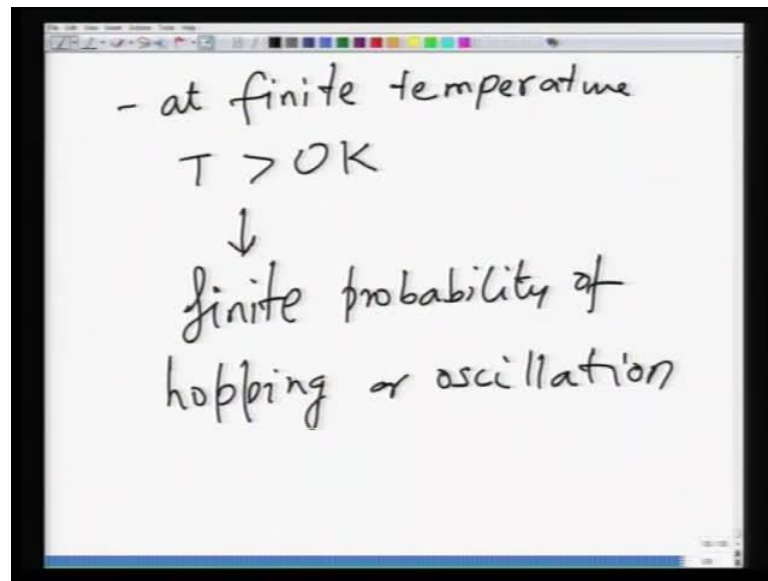 - at finite temperature
T > 0K
↓
finite probability of
hopping or oscillation